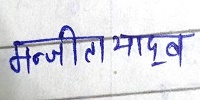 मन्जीता यादव